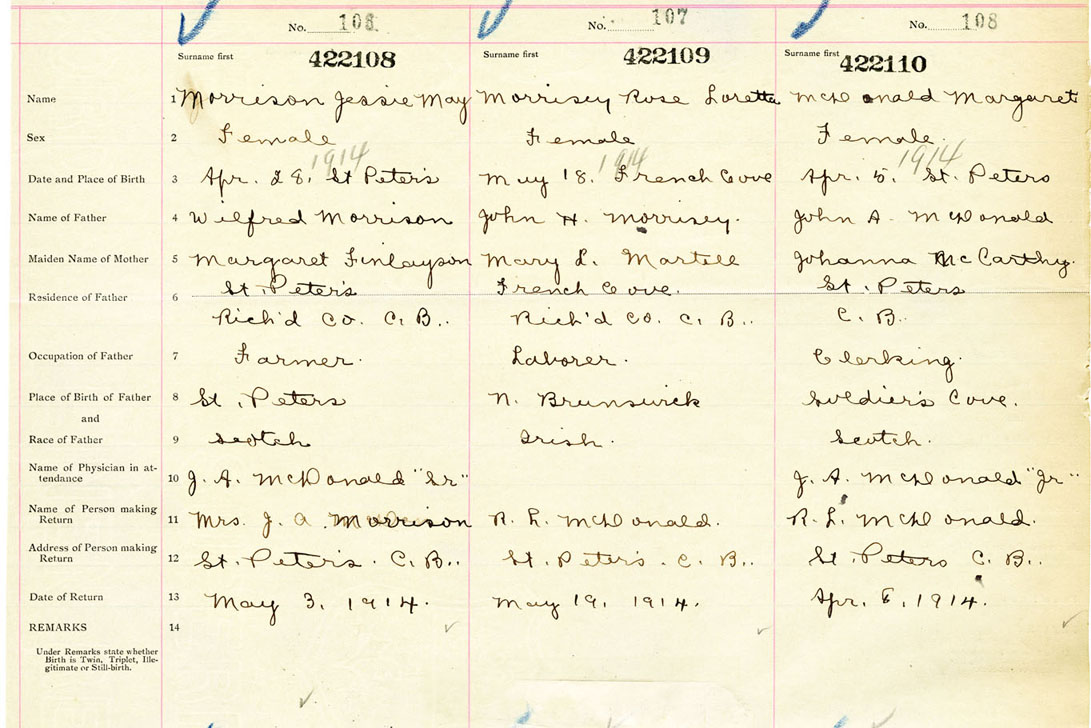 No. 106 No. 107 No. 108
Surname first 422108 Surname first 422109 Surname first 422110
Name 1 Morrison Jessie May Morrisey Rose Loretta McDonald Margaret
Sex 2 Female Female Female
1914 1914 1914
Date and Place of Birth 3 Apr. 28. St Peter's May 18. French Cove Apr. 5. St. Peters
Name of Father 4 Wilfred Morrison John H. Morrisey. John A. McDonald
Maiden Name of Mother 5 Margaret Finlayson Mary L. Martell Johanna McCarthy.
Residence of Father 6 St. Peter's French Cove. St. Peters
Rich'd Co. C. B.. Rich'd Co. C. B.. C. B..
Occupation of Father 7 Farmer. Laborer. Clerking.
Place of Birth of Father 8 St. Peters N. Brunswick Soldier's Cove.
and
Race of Father 9 Scotch Irish. Scotch.
Name of Physician in at-
tendance 10 J. A. McDonald "Sr" J. A. McDonald "Jr"
Name of Person making
Return 11 Mrs. J. A Morrison R. L. McDonald. R. L. McDonald.
Address of Person making
Return 12 St. Peter's. C. B.. St. Peter's. C. B.. St. Peters C. B..
Date of Return 13 May 3, 1914. May 19, 1914. Apr. 6, 1914.
REMARKS 14
Under Remarks state whether
Birth is Twin, Triplet, Ille-
gitimate or Still-birth.